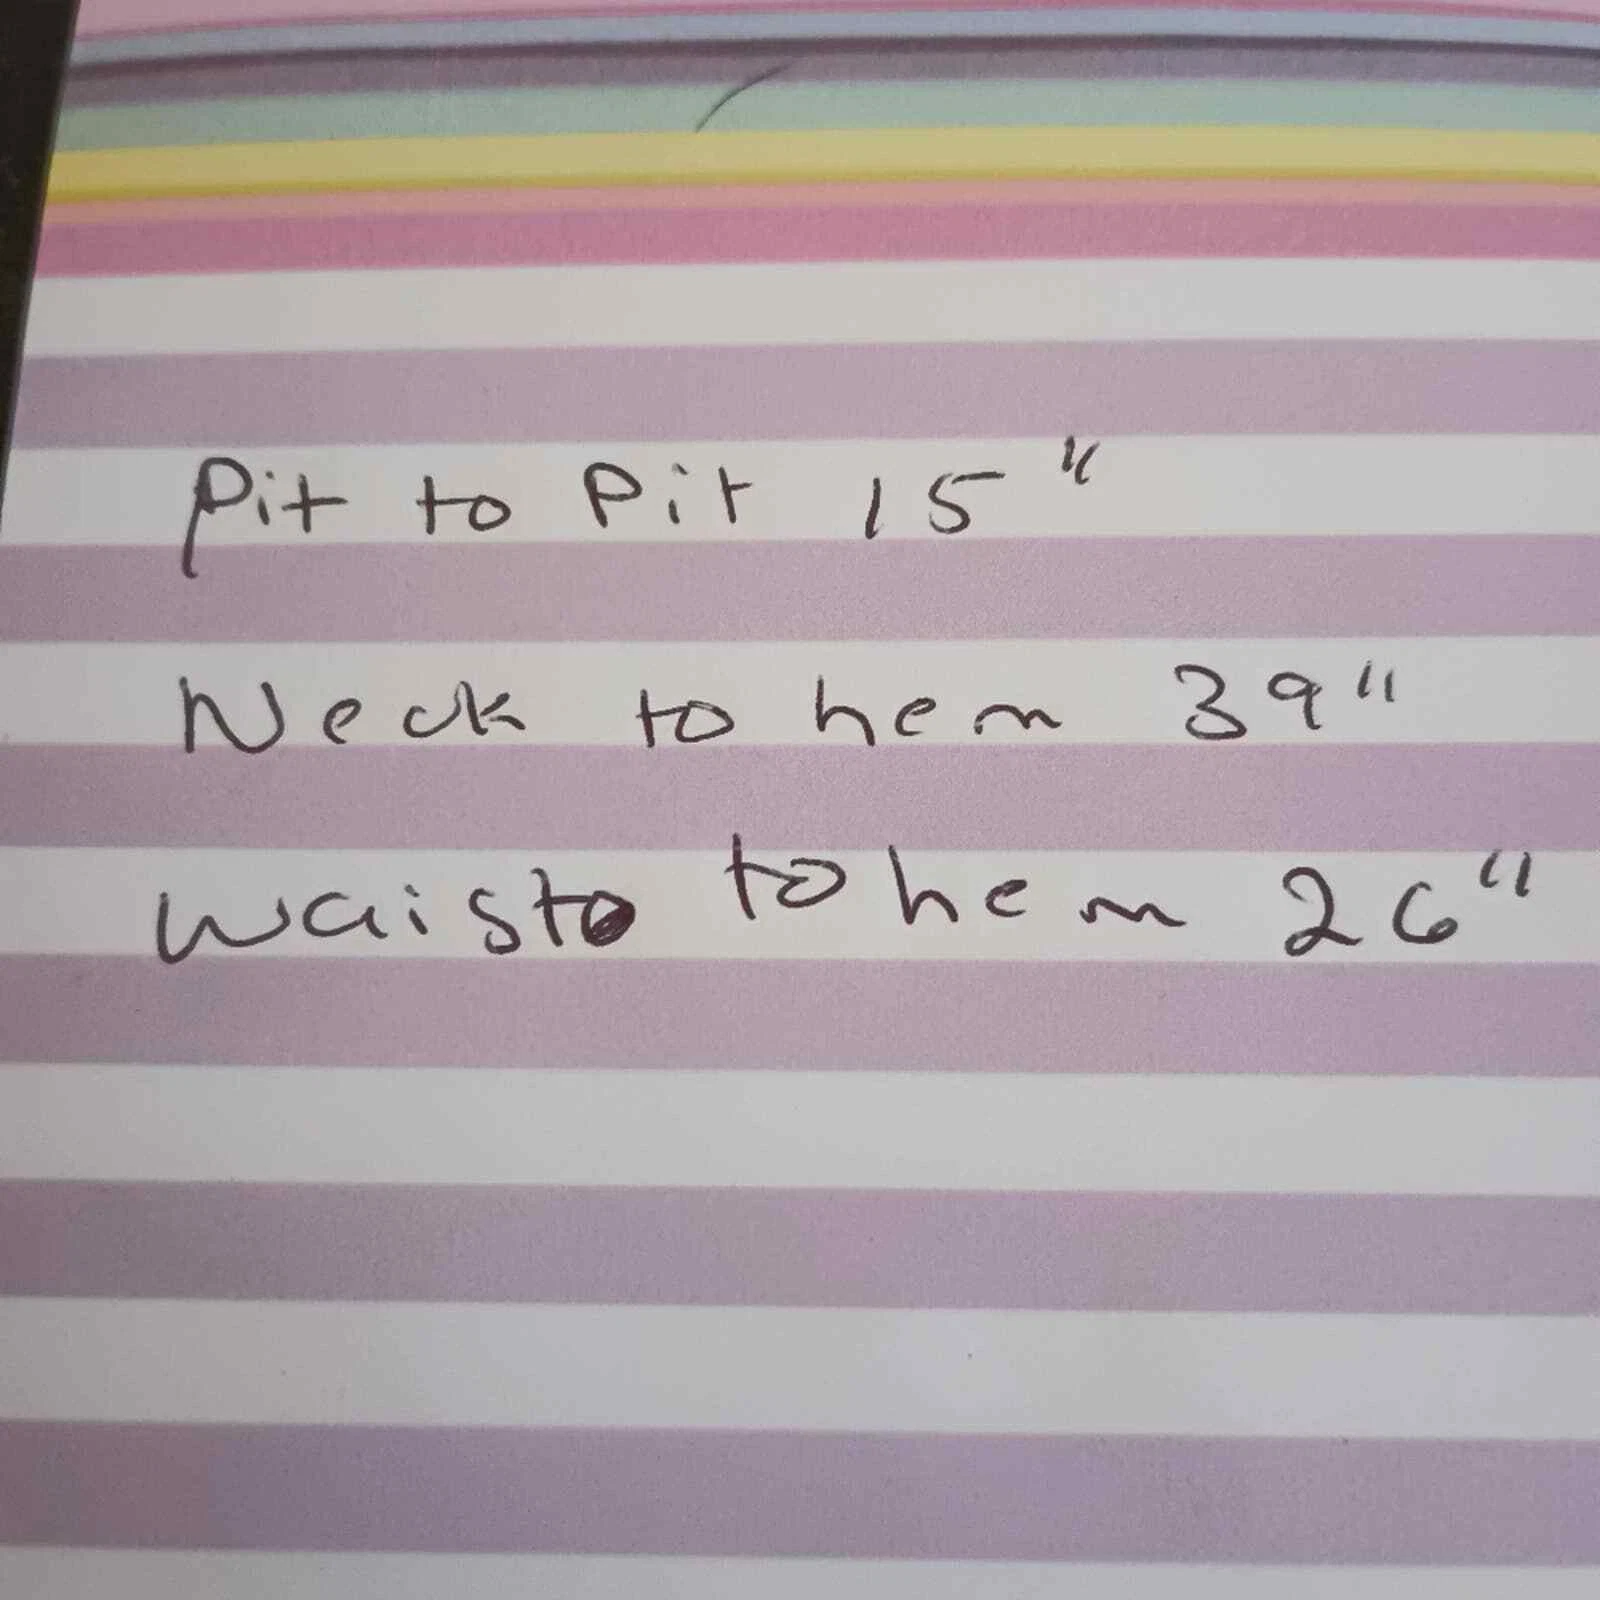 Pit to Pit 15"
Neck to hem 39"
Waist to hem 26"